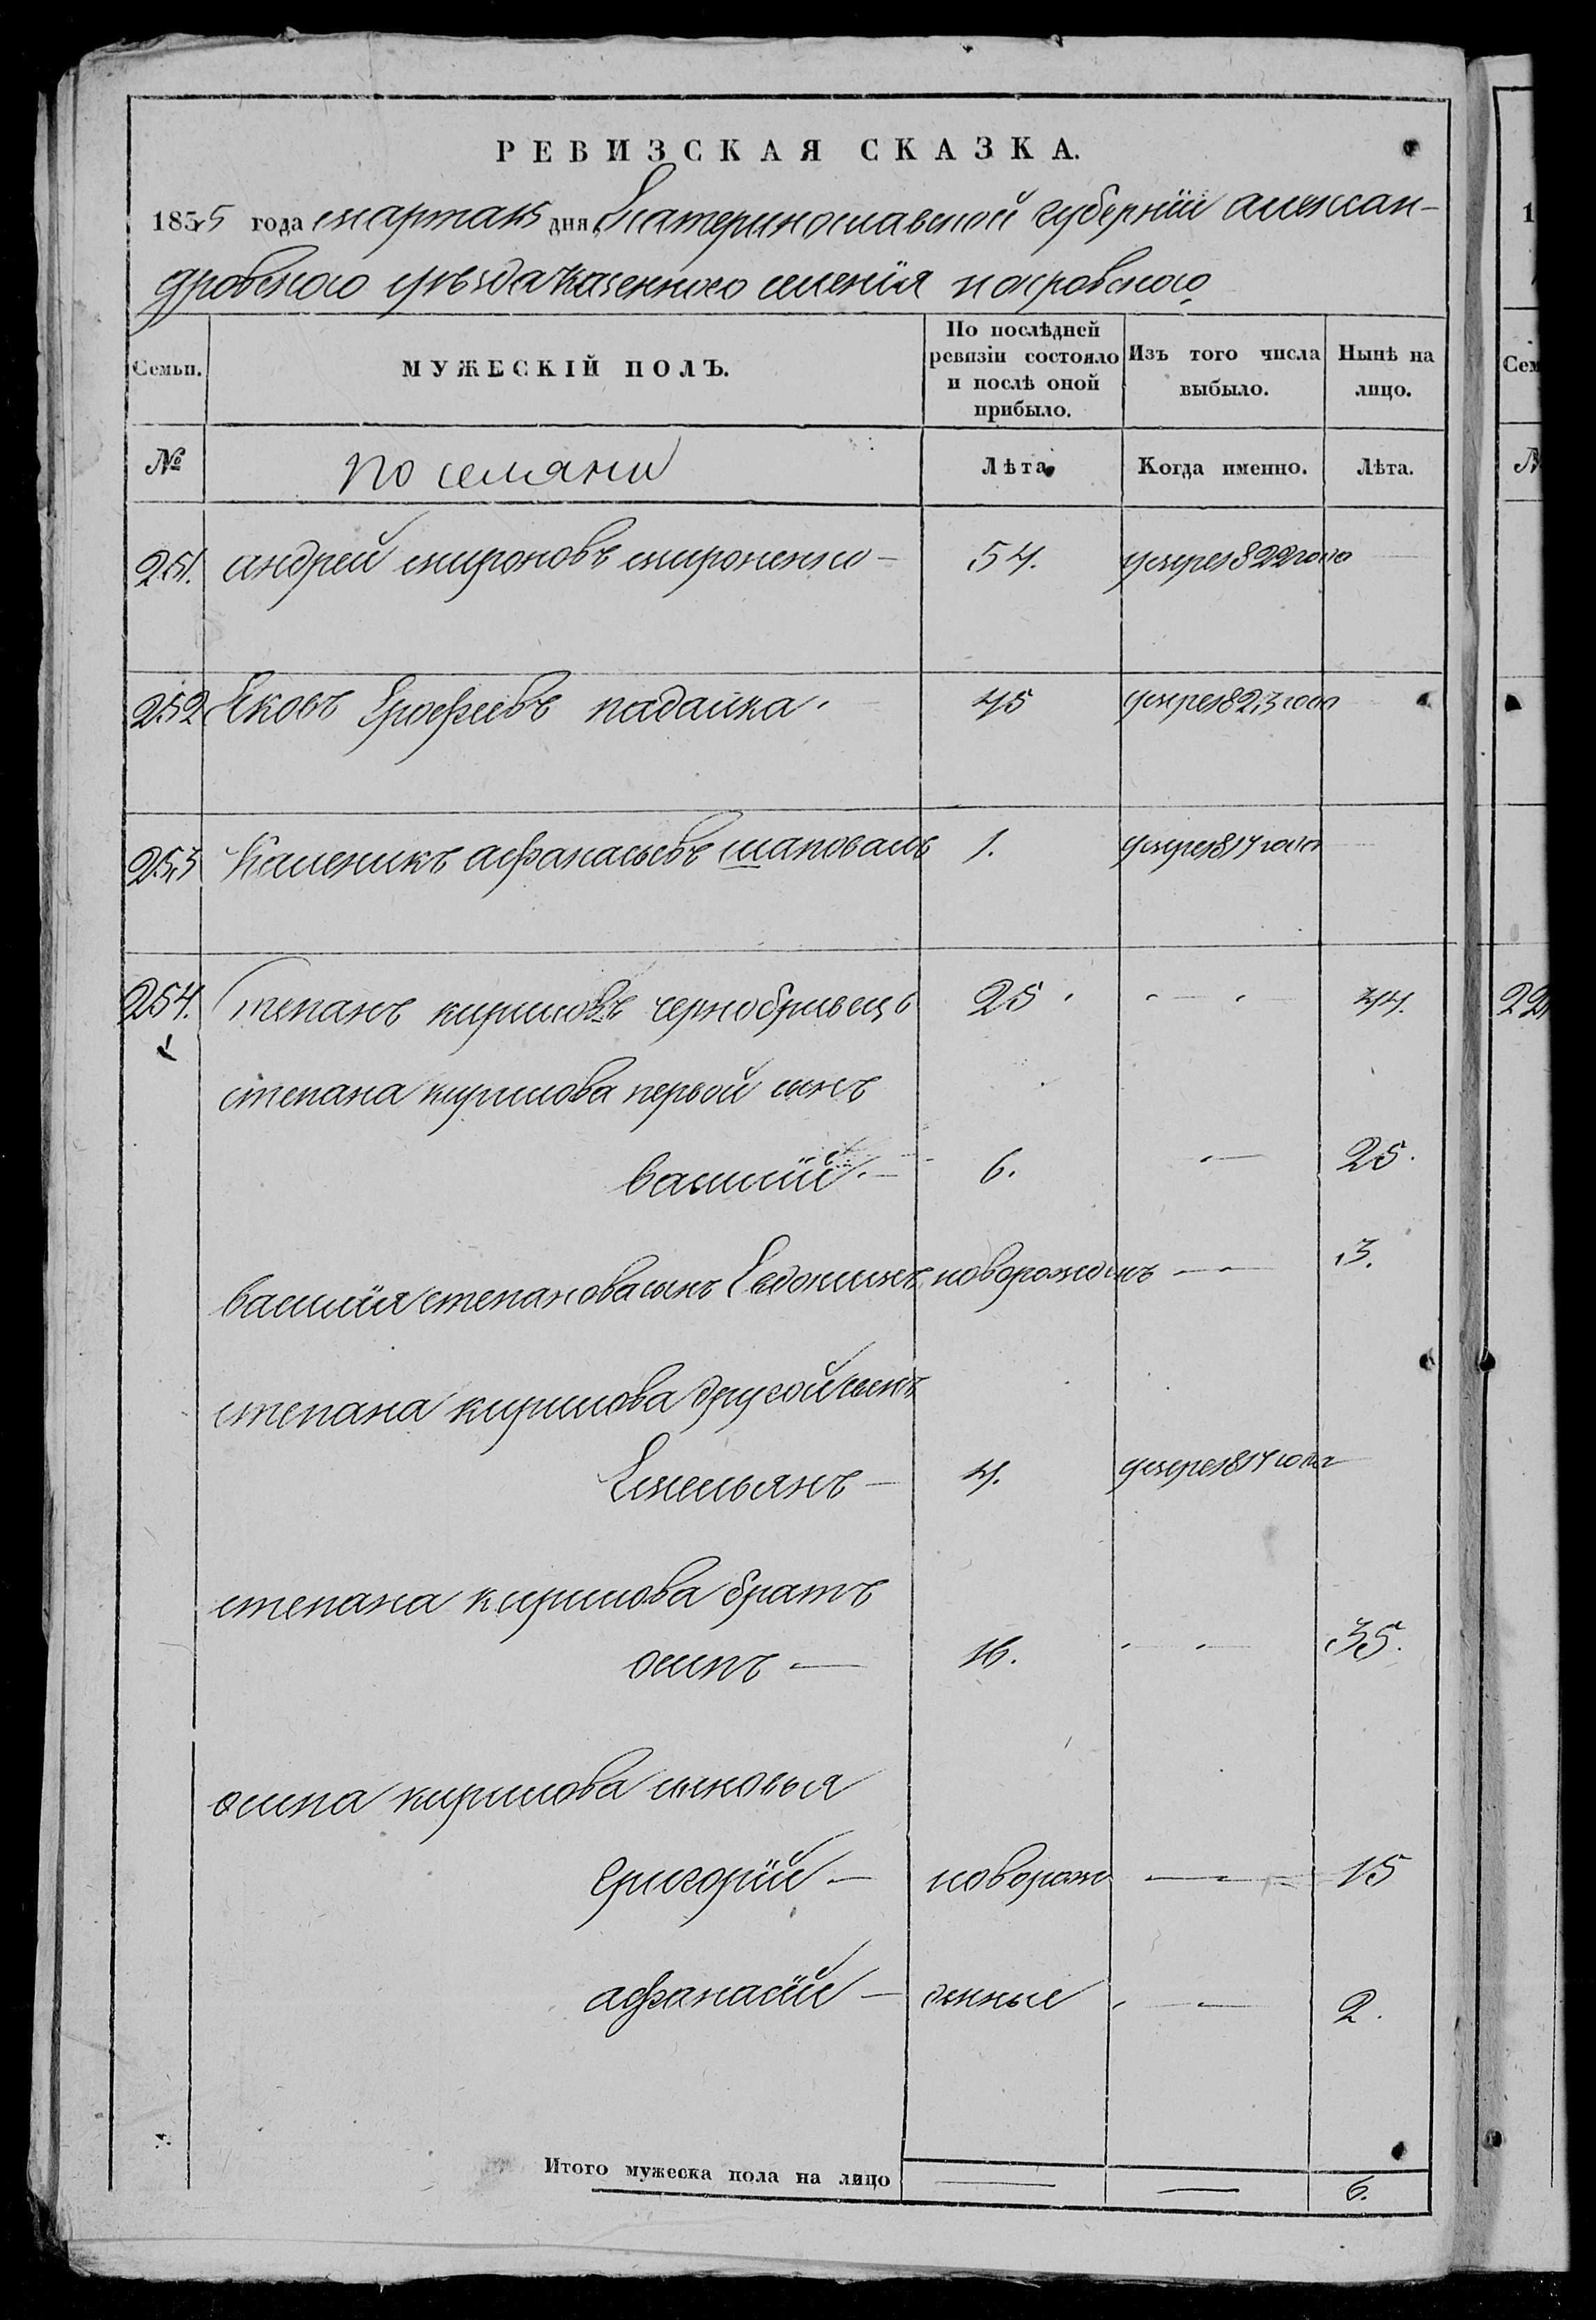 РЕВИЗСКАЯ СКАЗКА.
1835 года марта 15 дня Екатеринославской губерніи алексан-
дровского уѣзда казенного селенія покровского
Семьи. МУЖЕСКІЙ ПОЛЪ. По послѣдней ревизіи состояло и послѣ оной прибыло. Изъ того числа выбыло. Нынѣ на лицо.
№ поселяни Лѣта Когда именно. Лѣта.
251. андрей мироновъ мироненко — 54. умеръ 822 года
252 Яковъ Ерофеевъ падалка. 45 умеръ 823 года
253 Каленикъ афанасьевъ шаповалъ 1. умеръ 817 года
254. Степанъ кириловъ чернобривецъ 25 44.
степана кирилова первой сынъ
василій. — 6. — 25.
василия степанова сынъ Евдокимъ новорожденъ — 3.
степана кирилова другой сынъ
Емельянъ — 4. умеръ 817 года
степана кирилова братъ
осипъ — 16. 35.
осипа кирилова сыновья
григорій — новорож — 15
афанасій — денные — 2.
Итого мужеска пола на лицо — — 6.
1
Сем
№
22